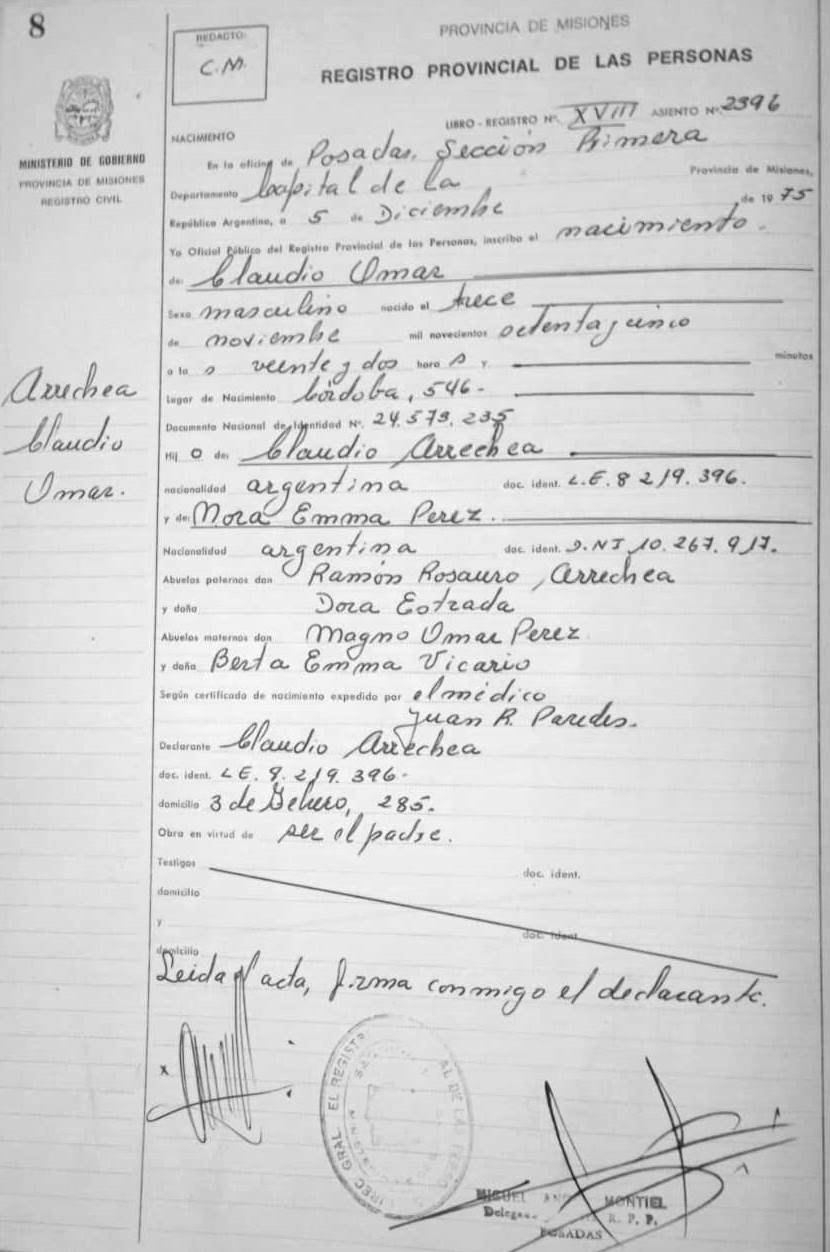 8
REDACTO:
C.M.
PROVINCIA DE MISIONES
REGISTRO PROVINCIAL DE LAS PERSONAS
MINISTERIO DE GOBIERNO
PROVINCIA DE MISIONES
REGISTRO CIVIL
LIBRO - REGISTRO Nº. XVIII ASIENTO Nº. 2396
NACIMIENTO
En la oficina de Posadas, Sección Primera
Departamento Capital de la Provincia de Misiones,
República Argentina, a 5 de Diciembre de 1975
Yo Oficial Público del Registro Provincial de las Personas, inscribo el nacimiento.
de: Claudio Omar
Sexo masculino nacido el trece
de noviembre mil novecientos setenta y cinco
a la s veinte y dos hora s y minutos
Lugar de Nacimiento Córdoba, 546-
Documento Nacional de Identidad Nº. 24.573.235
Hij o de: Claudio Arrechea
nacionalidad argentina doc. ident. L.E. 8 219.396.
y de: Nora Emma Perez.
Nacionalidad argentina doc. ident. D.NI 10.267.917.
Abuelos paternos don Ramón Rosauro Arrechea
y doña Dora Estrada
Abuelos maternos don Magno Omar Perez
y doña Berta Emma Vicario
Según certificado de nacimiento expedido por el médico
Juan R. Paredes.
Declarante Claudio Arrechea
doc. ident. LE. 8.219.396-
domicilio 3 de Febrero, 285.
Obra en virtud de ser el padre.
Testigos doc. ident.
domicilio
y doc. ident.
domicilio
Leida el acta, firma conmigo el declarante.
Arrechea
Claudio
Omar.
x
MIGUEL MONTIEL
R. P. P.
POSADAS